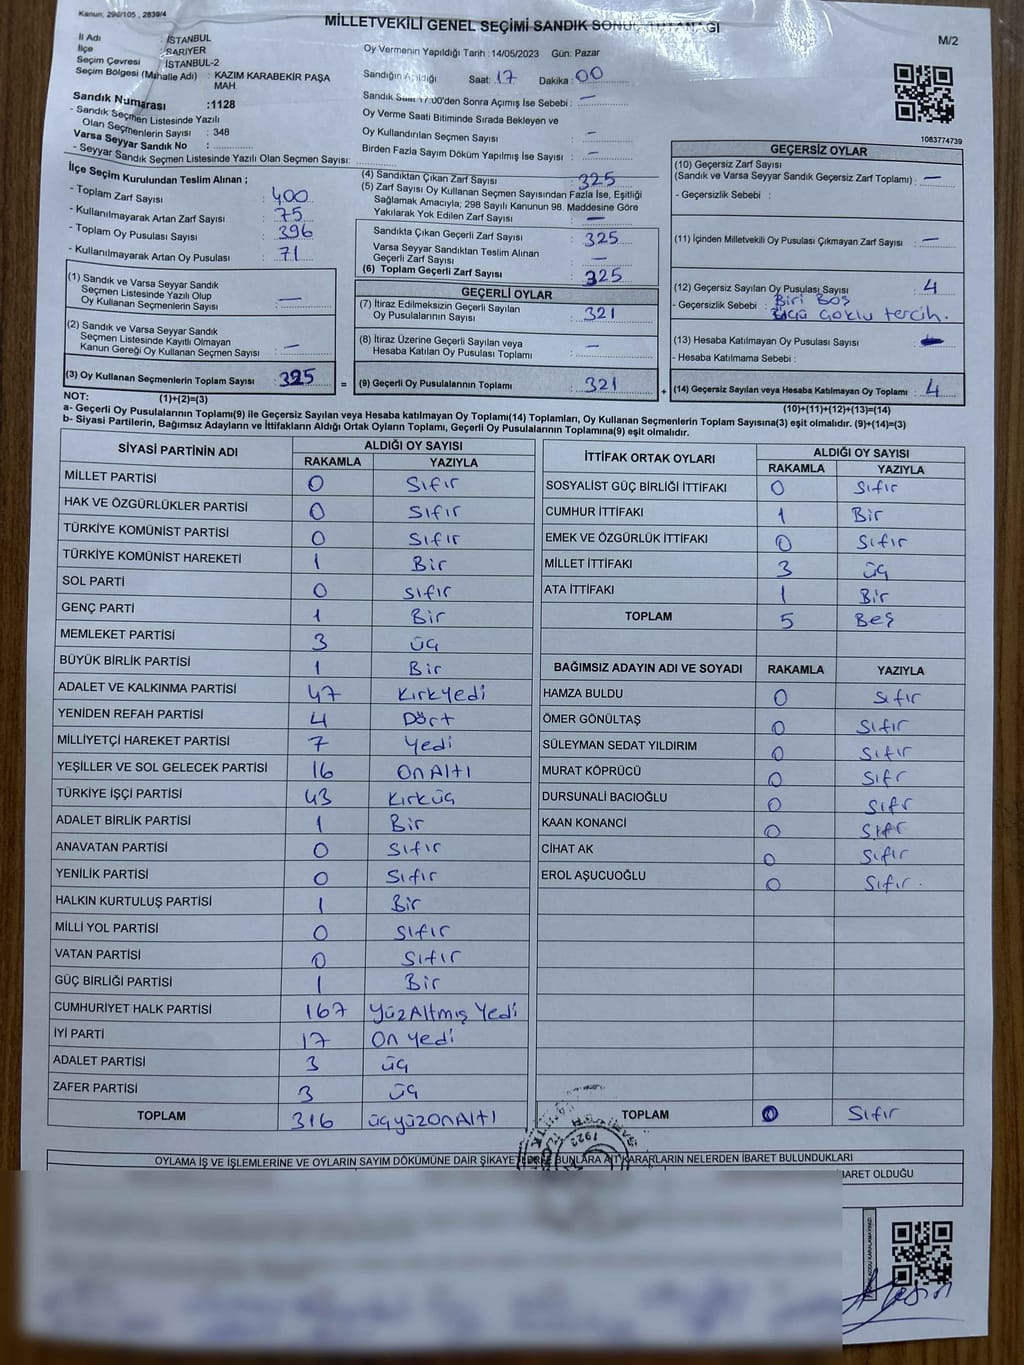 Kanun: 298/105 , 2839/4
MİLLETVEKİLİ GENEL SEÇİMİ SANDIK SONUÇ TUTANAĞI
M/2
İl Adı : İSTANBUL
İlçe : SARIYER
Seçim Çevresi : İSTANBUL-2
Seçim Bölgesi (Mahalle Adı) : KAZIM KARABEKİR PAŞA MAH.
Sandık Numarası :1128
- Sandık Seçmen Listesinde Yazılı
Olan Seçmenlerin Sayısı : 348
Varsa Seyyar Sandık No :
- Seyyar Sandık Seçmen Listesinde Yazılı Olan Seçmen Sayısı:
Oy Vermenin Yapıldığı Tarih :14/05/2023 Gün: Pazar
Sandığın Açıldığı Saat: 17 Dakika : 00
Sandık Saat 17:00'den Sonra Açımış İse Sebebi : —
Oy Verme Saati Bitiminde Sırada Bekleyen ve
Oy Kullandırılan Seçmen Sayısı : —
Birden Fazla Sayım Döküm Yapılmış İse Sayısı : —
1083774739
İlçe Seçim Kurulundan Teslim Alınan ;
- Toplam Zarf Sayısı : 400
- Kullanılmayarak Artan Zarf Sayısı : 75
- Toplam Oy Pusulası Sayısı : 396
- Kullanılmayarak Artan Oy Pusulası : 71
(1) Sandık ve Varsa Seyyar Sandık
Seçmen Listesinde Yazılı Olup
Oy Kullanan Seçmenlerin Sayısı : —
(2) Sandık ve Varsa Seyyar Sandık
Seçmen Listesinde Kayıtlı Olmayan
Kanun Gereği Oy Kullanan Seçmen Sayısı : —
(3) Oy Kullanan Seçmenlerin Toplam Sayısı : 325
(4) Sandıktan Çıkan Zarf Sayısı : 325
(5) Zarf Sayısı Oy Kullanan Seçmen Sayısından Fazla İse, Eşitliği
Sağlamak Amacıyla; 298 Sayılı Kanunun 98. Maddesine Göre
Yakılarak Yok Edilen Zarf Sayısı : —
Sandıkta Çıkan Geçerli Zarf Sayısı : 325
Varsa Seyyar Sandıktan Teslim Alınan
Geçerli Zarf Sayısı : —
(6) Toplam Geçerli Zarf Sayısı : 325
GEÇERLİ OYLAR
(7) İtiraz Edilmeksizin Geçerli Sayılan
Oy Pusulalarının Sayısı : 321
(8) İtiraz Üzerine Geçerli Sayılan veya
Hesaba Katılan Oy Pusulası Toplamı : —
= (9) Geçerli Oy Pusulalarının Toplamı : 321
GEÇERSİZ OYLAR
(10) Geçersiz Zarf Sayısı
(Sandık ve Varsa Seyyar Sandık Geçersiz Zarf Toplamı) : —
- Geçersizlik Sebebi :
(11) İçinden Milletvekili Oy Pusulası Çıkmayan Zarf Sayısı : —
(12) Geçersiz Sayılan Oy Pusulası Sayısı : 4
- Geçersizlik Sebebi : Biri Boş
üçü çoklu tercih.
(13) Hesaba Katılmayan Oy Pusulası Sayısı : —
- Hesaba Katılmama Sebebi :
+ (14) Geçersiz Sayılan veya Hesaba Katılmayan Oy Toplamı : 4
NOT: (1)+(2)=(3) (10)+(11)+(12)+(13)=(14)
a- Geçerli Oy Pusulalarının Toplamı(9) ile Geçersiz Sayılan veya Hesaba katılmayan Oy Toplamı(14) Toplamları, Oy Kullanan Seçmenlerin Toplam Sayısına(3) eşit olmalıdır. (9)+(14)=(3)
b- Siyasi Partilerin, Bağımsız Adayların ve İttifakların Aldığı Ortak Oyların Toplamı, Geçerli Oy Pusulalarının Toplamına(9) eşit olmalıdır.
SİYASİ PARTİNİN ADI ALDIĞI OY SAYISI
RAKAMLA YAZIYLA
MİLLET PARTİSİ 0 Sıfır
HAK VE ÖZGÜRLÜKLER PARTİSİ 0 Sıfır
TÜRKİYE KOMÜNİST PARTİSİ 0 Sıfır
TÜRKİYE KOMÜNİST HAREKETİ 1 Bir
SOL PARTİ 0 sıfır
GENÇ PARTİ 1 Bir
MEMLEKET PARTİSİ 3 üç
BÜYÜK BİRLİK PARTİSİ 1 Bir
ADALET VE KALKINMA PARTİSİ 47 Kırkyedi
YENİDEN REFAH PARTİSİ 4 Dört
MİLLİYETÇİ HAREKET PARTİSİ 7 Yedi
YEŞİLLER VE SOL GELECEK PARTİSİ 16 OnAltı
TÜRKİYE İŞÇİ PARTİSİ 43 Kırküç
ADALET BİRLİK PARTİSİ 1 Bir
ANAVATAN PARTİSİ 0 Sıfır
YENİLİK PARTİSİ 0 Sıfır
HALKIN KURTULUŞ PARTİSİ 1 Bir
MİLLİ YOL PARTİSİ 0 Sıfır
VATAN PARTİSİ 0 Sıfır
GÜÇ BİRLİĞİ PARTİSİ 1 Bir
CUMHURİYET HALK PARTİSİ 167 YüzAltmış Yedi
İYİ PARTİ 17 On Yedi
ADALET PARTİSİ 3 üç
ZAFER PARTİSİ 3 üç
TOPLAM 316 üçyüzonAltı
İTTİFAK ORTAK OYLARI ALDIĞI OY SAYISI
RAKAMLA YAZIYLA
SOSYALİST GÜÇ BİRLİĞİ İTTİFAKI 0 Sıfır
CUMHUR İTTİFAKI 1 Bir
EMEK VE ÖZGÜRLÜK İTTİFAKI 0 Sıfır
MİLLET İTTİFAKI 3 üç
ATA İTTİFAKI 1 Bir
TOPLAM 5 Beş
BAĞIMSIZ ADAYIN ADI VE SOYADI RAKAMLA YAZIYLA
HAMZA BULDU 0 Sıfır
ÖMER GÖNÜLTAŞ 0 Sıfır
SÜLEYMAN SEDAT YILDIRIM 0 Sıfır
MURAT KÖPRÜCÜ 0 Sıfr
DURSUNALİ BACIOĞLU 0 Sıfr
KAAN KONANCİ 0 Sıfr
CİHAT AK 0 Sıfır
EROL AŞUCUOĞLU 0 Sıfır.
TOPLAM 0 Sıfır
1922
OYLAMA İŞ VE İŞLEMLERİNE VE OYLARIN SAYIM DÖKÜMÜNE DAİR ŞİKAYETLERLE BUNLARA AİT KARARLARIN NELERDEN İBARET BULUNDUKLARI
BARET OLDUĞU